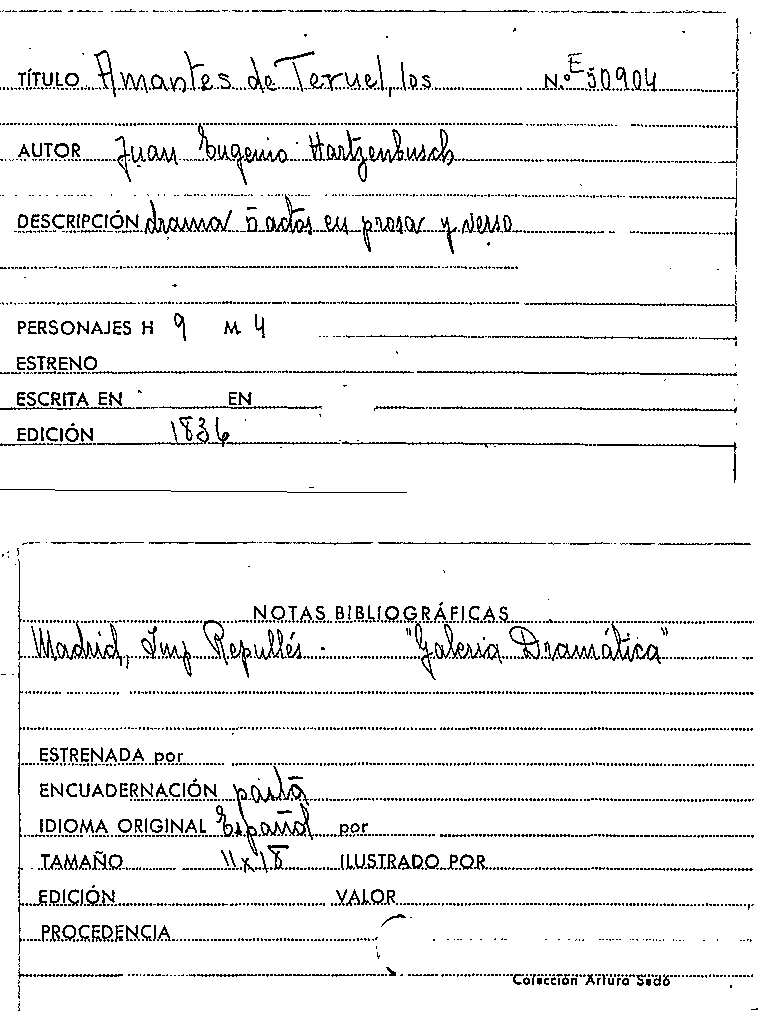 TÍTULO Amantes de Teruel, los N.º E 50904
AUTOR Juan Eugenio Hartzenbusch
DESCRIPCIÓN drama 5 actos en prosa y verso
PERSONAJES H 9 M 4
ESTRENO
ESCRITA EN EN
EDICIÓN 1836
NOTAS BIBLIOGRÁFICAS
Madrid, Imp Repullés. "Galeria Dramática"
ESTRENADA por
ENCUADERNACIÓN pasta
IDIOMA ORIGINAL Español por
TAMAÑO 11x18 ILUSTRADO POR
EDICIÓN VALOR
PROCEDENCIA
Colección Arturo Sedó